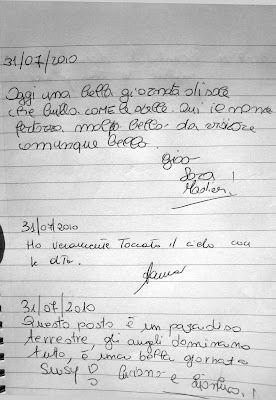 31/07/2010
Oggi una bella giornata di sole
che bulla COME le stelle. Qui io non
fortezza molto bello da visitare
comunque bello.
Ciao
Sara!
31/07/2010
Ho veramente Toccato il cielo con
le dita.
31/07/2010
Questo posto è un paradiso
terrestre, gli angeli dominano
tutto, è una bella giornata
Susy e